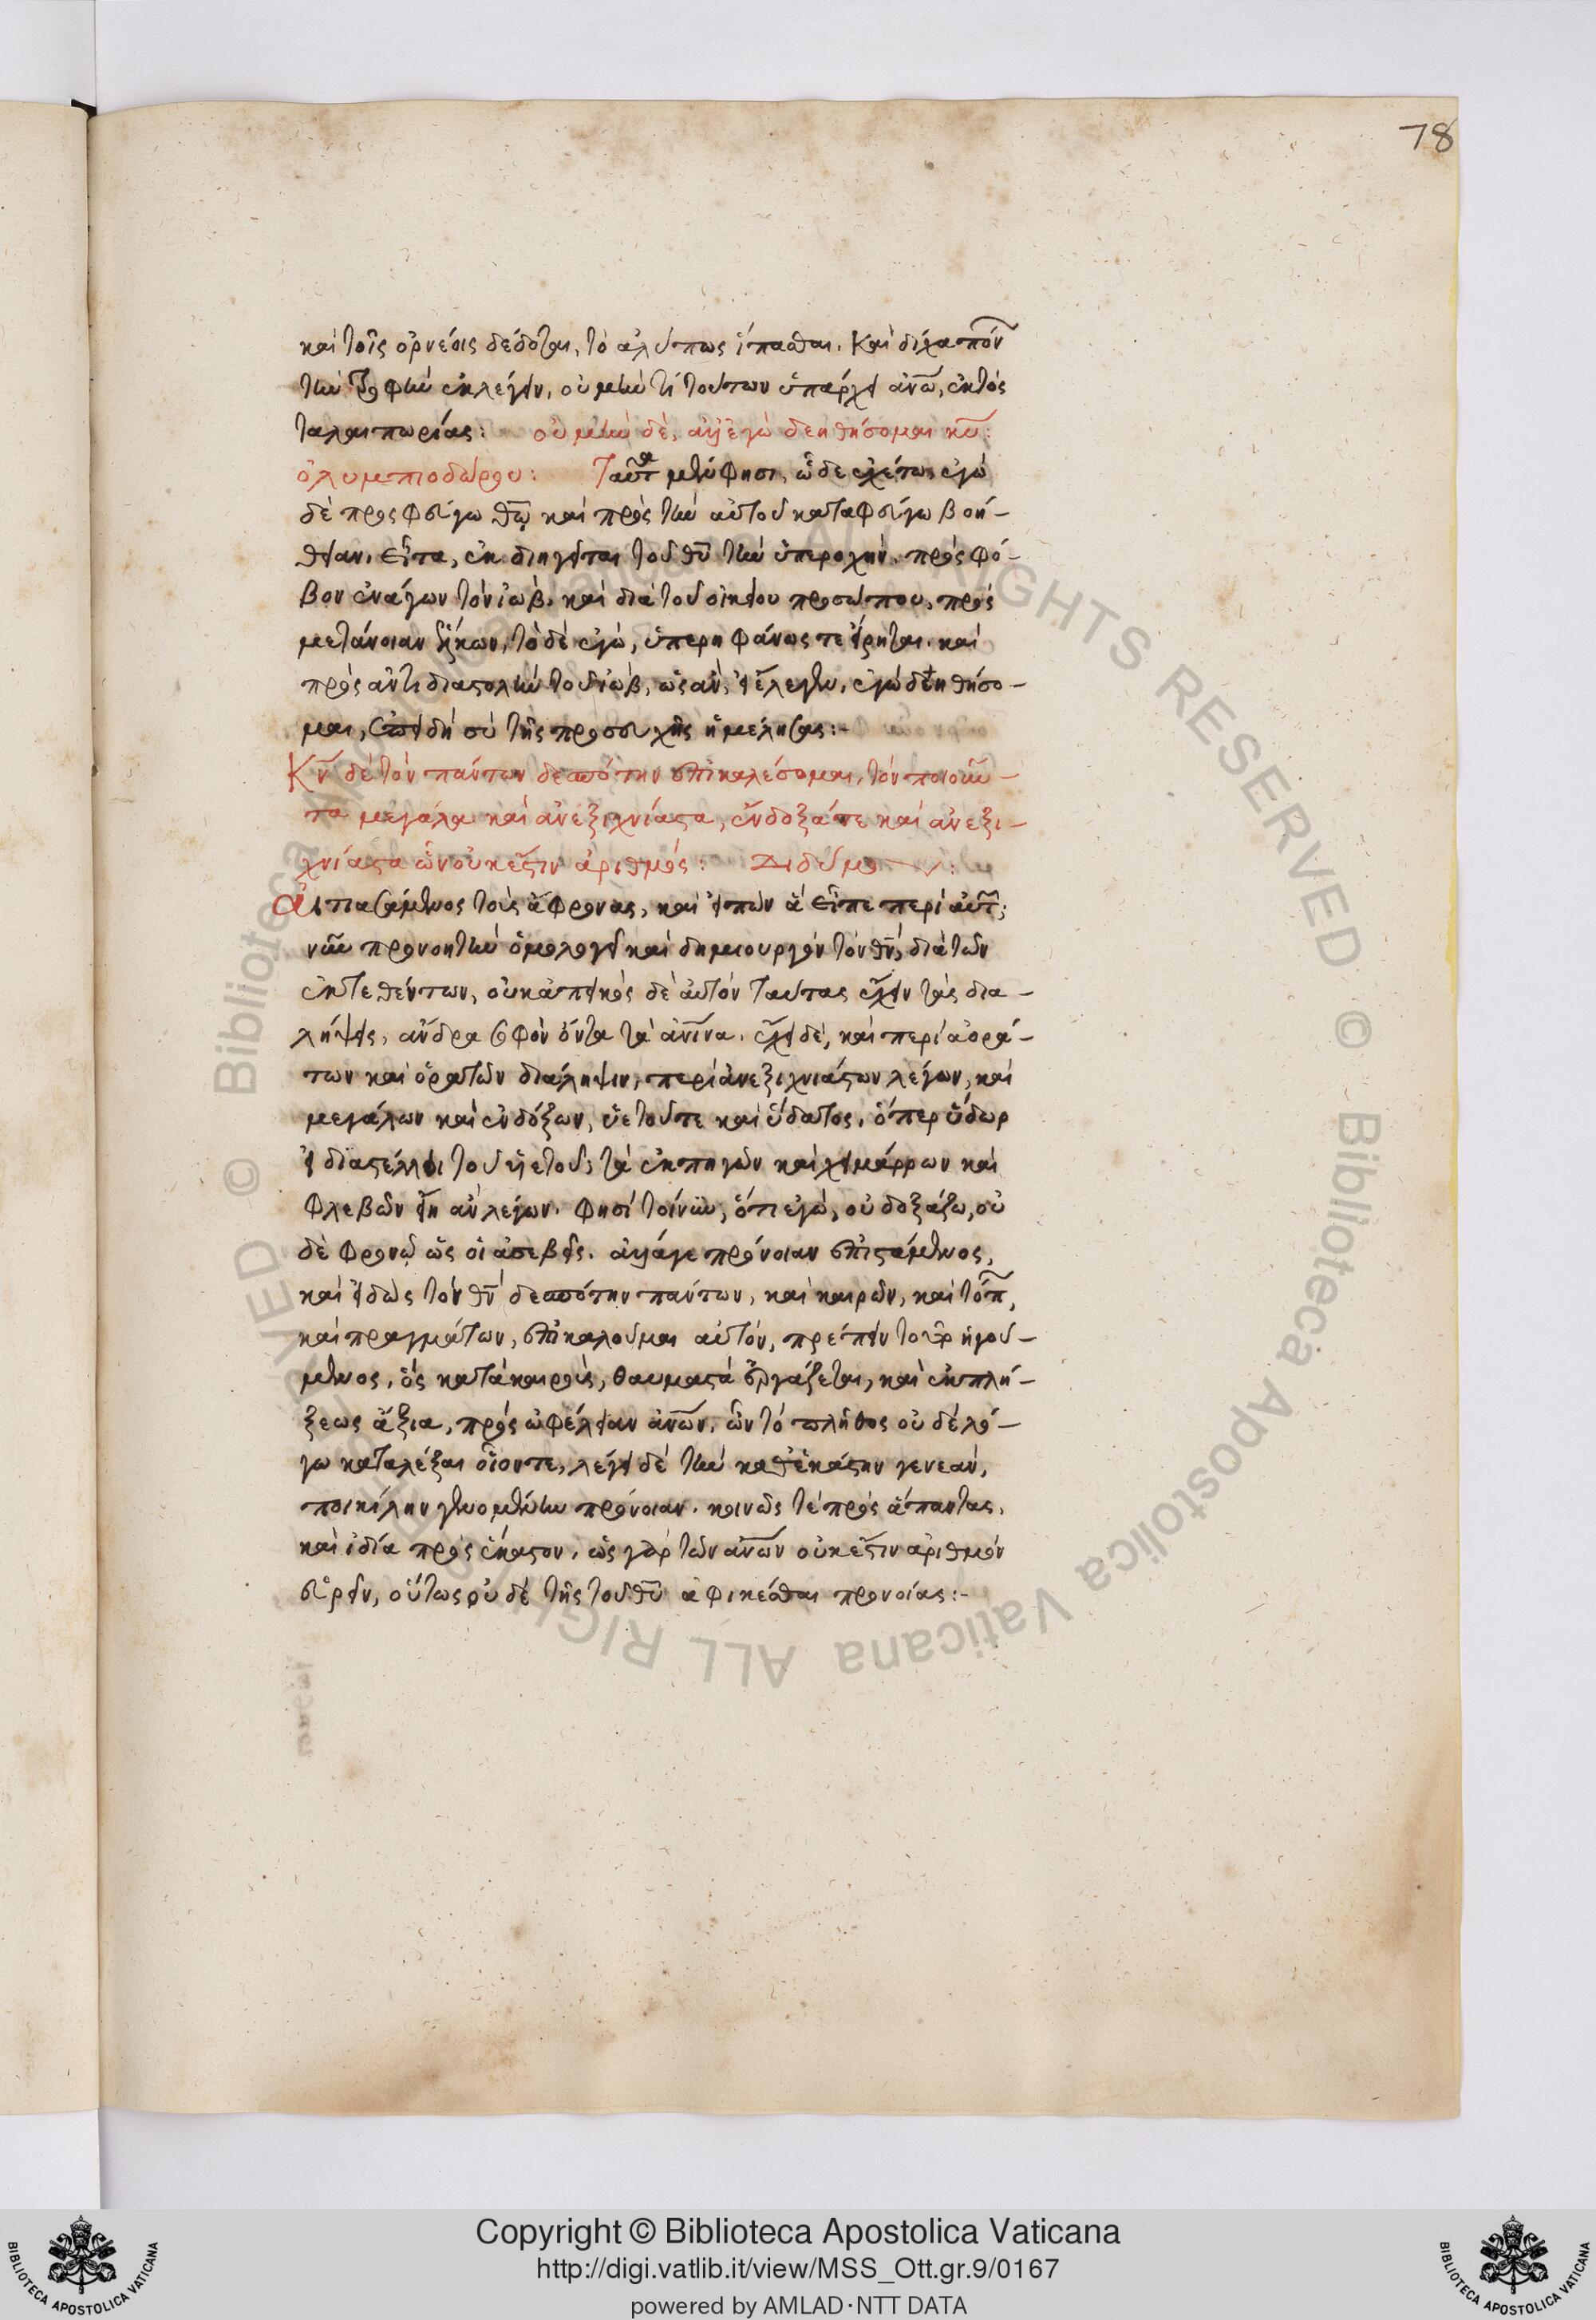 78
καὶ τοῖς ὀρνέοις δέδοται, τὸ ἀλύπως ἵπτασθαι. καὶ δίχα πόν
τὴν τροφὴν ἐκλέγειν, οὐ μὴν τί τούτων ὑπάρχει ἀνω, ἐκτὸς
ταλαιπωρίας: οὐ μὴν δὲ, ἀλλ' ἐγὼ δεηθήσομαι κυ:
ὀλυμπιοδώρου: Ταῦτα μὲν φησι, ὧδε ἐχέτω. ἐγὼ
δὲ προσφεύγω θω καὶ πρὸς τὴν αὐτοῦ καταφεύγω βοή-
θειαν. εἶτα, ἐκδιηγεῖται τοῦ θυ τὴν ὑπεροχὴν. πρὸς φό-
βον ἐνάγων τὸν ἰὼβ. καὶ διὰ τοῦ οἰκείου προσώπου, πρὸς
μετάνοιαν ἕλκων, τὸ δὲ ἐγὼ, ὑπερηφάνως τε εἴρηται. καὶ
πρὸς ἀντιδιαστολὴν τοῦ ἰὼβ, ὡς ἂν, εἰ ἔλεγεν, ἐγὼ δεηθήσο-
μαι, ἐπειδὴ σὺ τῆς προσευχῆς ἠμέλησας:-
Κν δὲ τὸν πάντων δεσπότην ἐπικαλέσομαι, τὸν ποιοῦν-
τα μεγάλα καὶ ἀνεξιχνίαστα, ἔνδοξά τε καὶ ἀνεξι-
χνίαστα ὧν οὐκ ἔστιν ἀριθμός: Διδύμου:
Αἰτιασάμενος τοὺς ἄφρονας, καὶ εἰπὼν ἃ εἶπε περὶ αὐτ;
νῦν προνοητὴν ὁμολογεῖ καὶ δημιουργὸν τὸν θν, διὰ τῶν
ἐκτεθέντων, οὐκ ἀπεικὸς δὲ αὐτὸν ταύτας ἔχειν τὰς δια-
λήψεις, ἄνδρα σοφὸν ὄντα τὰ ἀνινα. ἔχει δὲ, καὶ περὶ ἀορά-
των καὶ ὁρατῶν διάληψιν, περὶ ἀνεξιχνιάστων λέγων, καὶ
μεγάλων καὶ ἐνδόξων, ὑετοῦ τε καὶ ὕδατος. ὅπερ ὕδωρ
εἰ διαστέλλοι τοῦ ὑετοῦ, τὰ ἐκ πηγῶν καὶ χειμάρρων καὶ
φλεβῶν εἴη ἂν λέγων. φησὶ τοίνυν, ὅτι ἐγὼ, οὐ δοξάζω, οὐ
δὲ φρονῶ ὡς οἱ ἀσεβεῖς. ἀλλά γε πρόνοιαν ἐπιστάμενος,
καὶ εἰδὼς τὸν θν δεσπότην πάντων, καὶ καιρῶν, καὶ τόπ,
καὶ πραγμάτων, ἐπικαλοῦμαι αὐτόν, πρέπειν τοῦτο ἡγού-
μενος, ὃς κατὰ καιροὺς, θαυμαστὰ ἐργάζεται, καὶ ἐκπλή-
ξεως ἄξια, πρὸς ὠφέλειαν ἀνων. ὧν τὸ πλῆθος οὐδὲ λό-
γω καταλέξαι οἷόν τε, λέγει δὲ τὴν καθ' ἑκάστην γενεὰν,
ποικίλην γενομένην πρόνοιαν. κοινῶς τὲ πρὸς ἅπαντας.
καὶ ἰδία πρὸς ἕκαστον. ὡς γὰρ τῶν ἀνων οὐκ ἔστιν ἀριθμὸν
εὑρεῖν, οὕτως οὐδὲ τῆς τοῦ θυ ἀφικέσθαι προνοίας:-
Copyright © Biblioteca Apostolica Vaticana
http://digi.vatlib.it/view/MSS_Ott.gr.9/0167
powered by AMLAD·NTT DATA